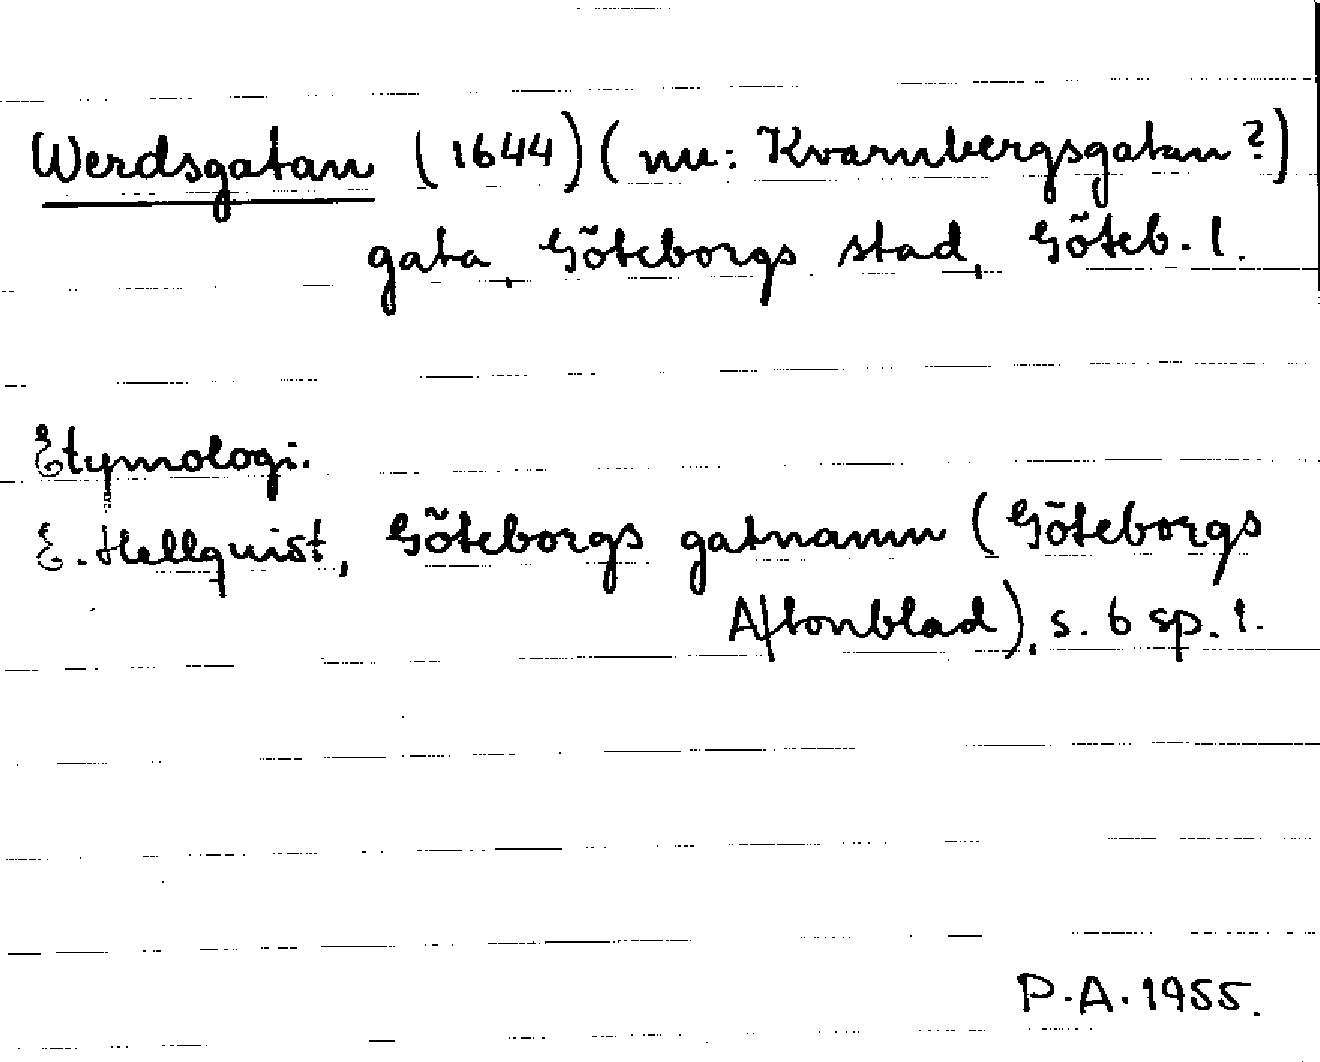 Werdsgatan (1644) (nu: Kvarnbergsgatan?)
gata, Göteborgs stad, Göteb. l.
Etymologi.
E. Hellquist, Göteborgs gatnamn (Göteborgs
Aftonblad), s. 6 sp. 1.
P.A. 1955.